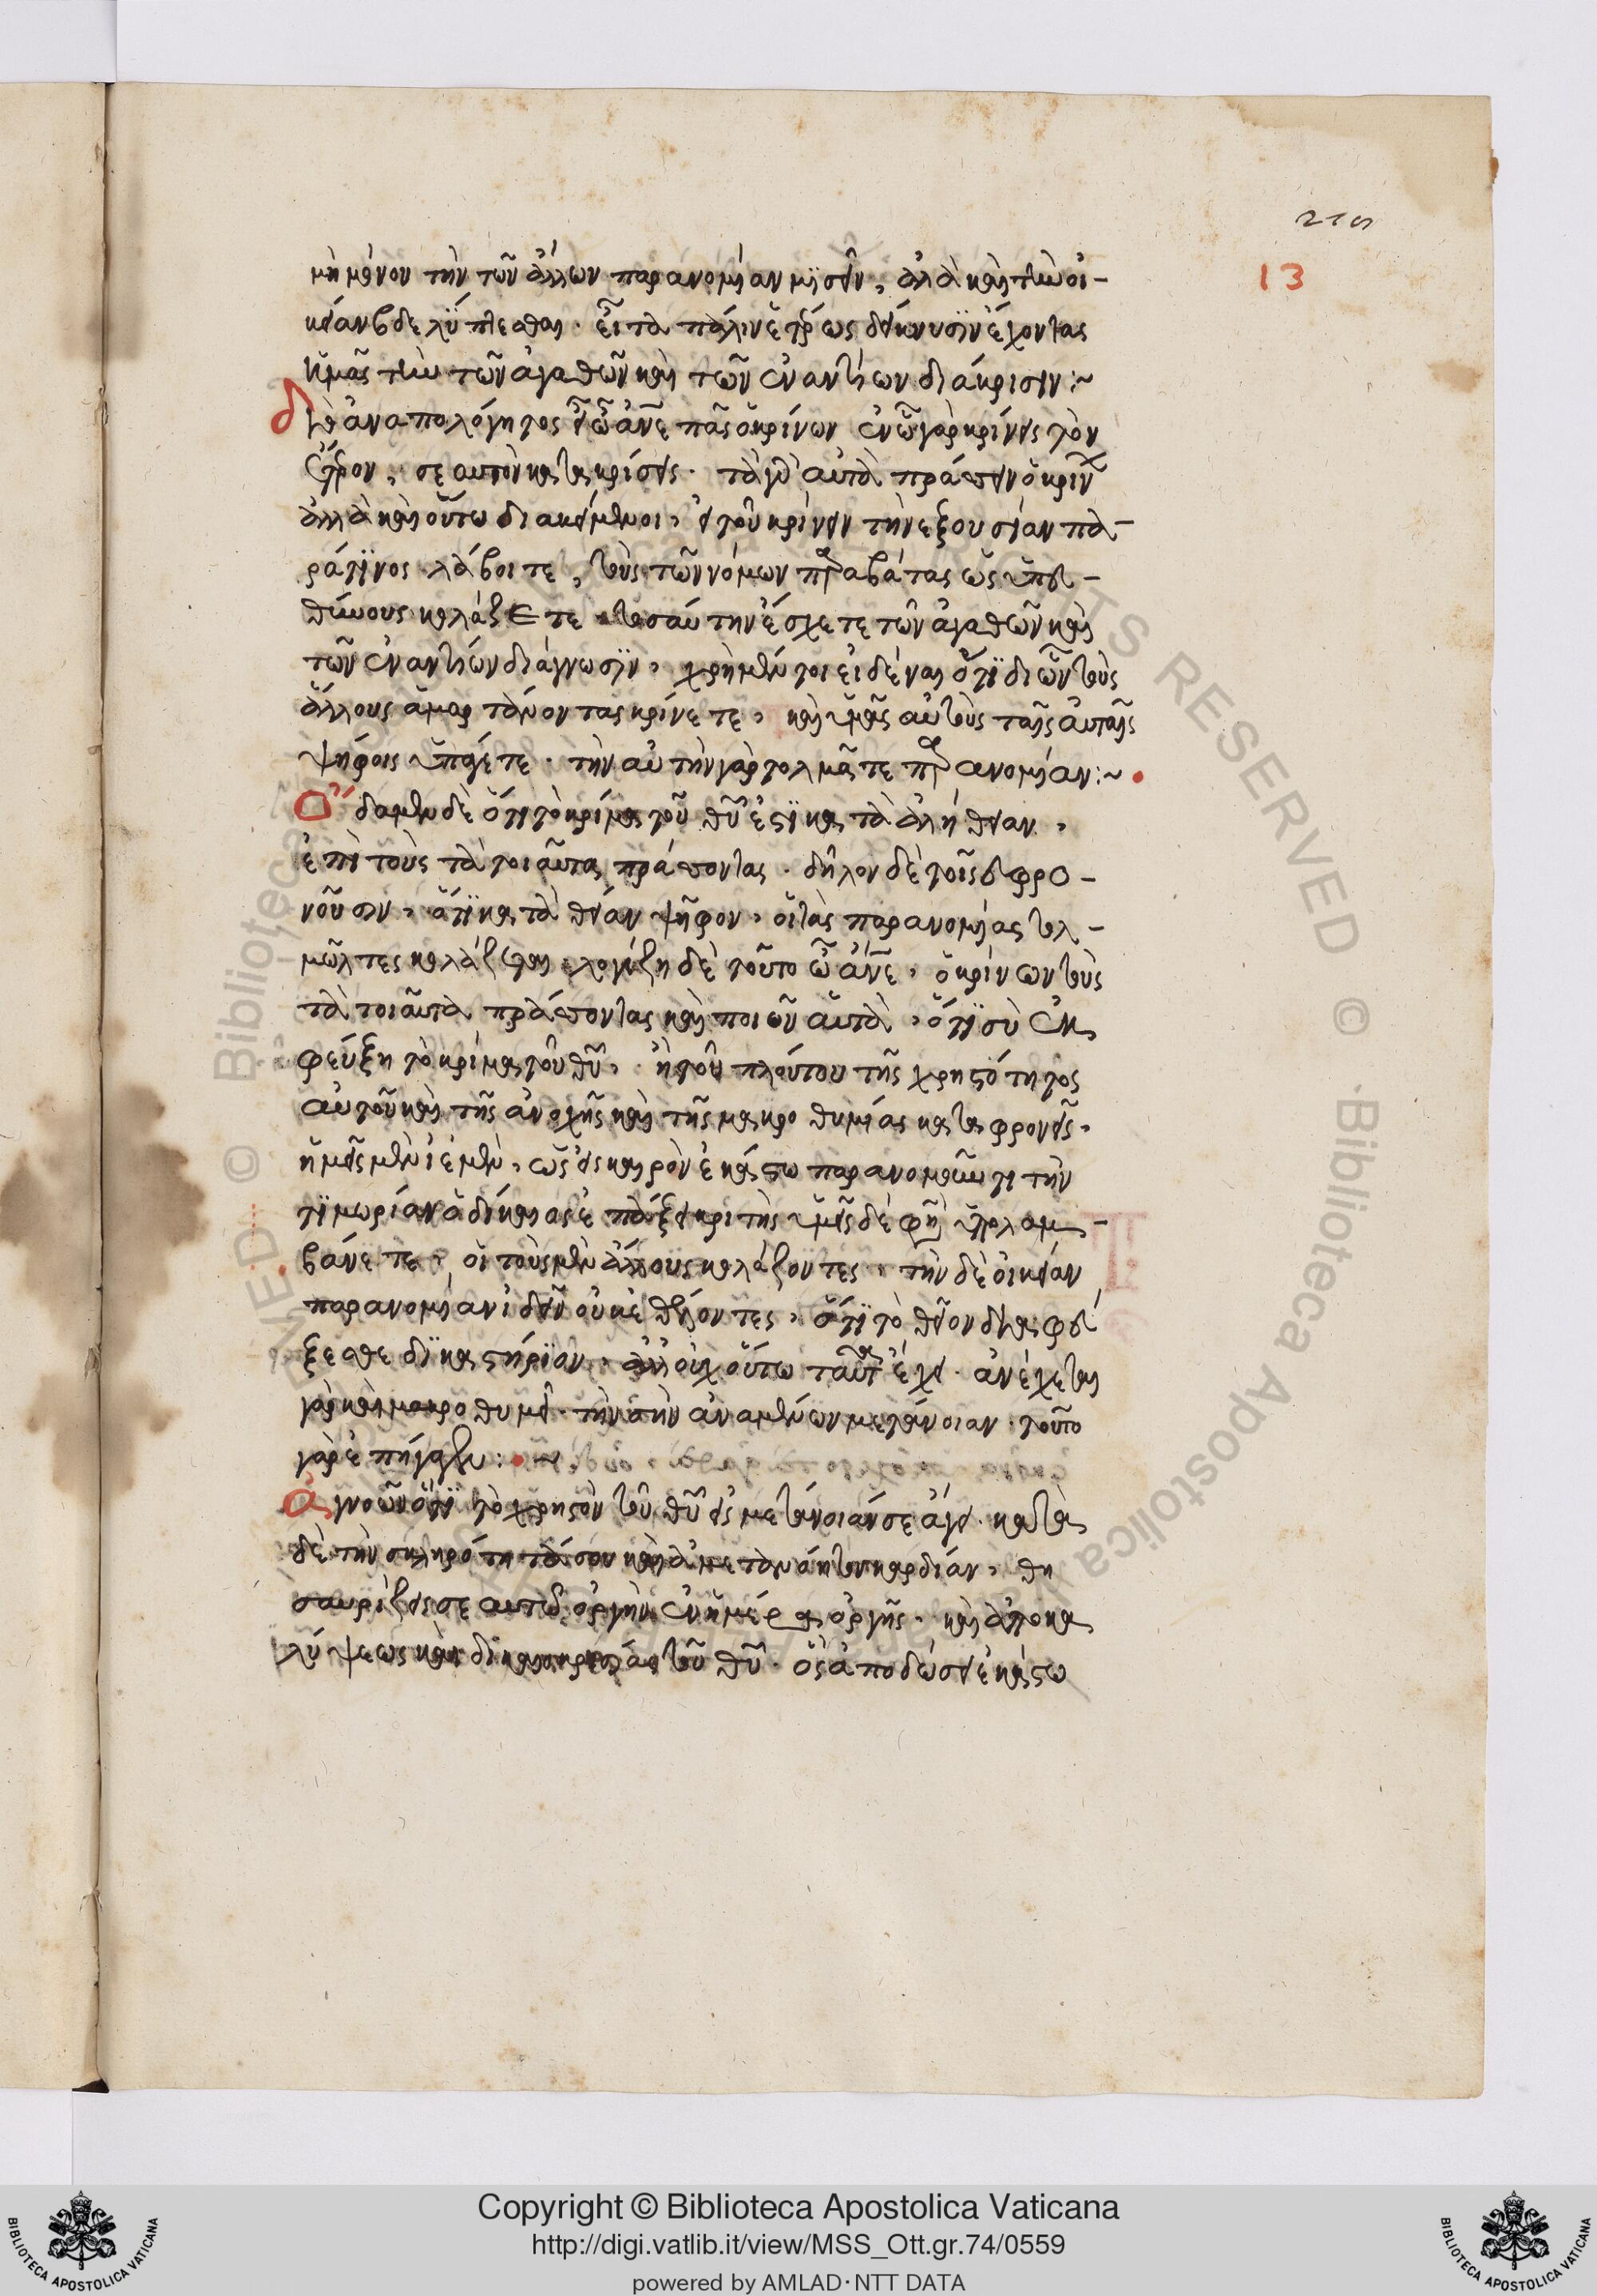 279
13
μὴ μόνον τὴν τῶν ἄλλων παρανομίαν μισεῖν, ἀλλὰ καὶ τὴν οἰ-
κείαν βδελύττεσθαι. εἶτα πάλιν ἑτέρως δείκνυσιν ἔχοντας
ἡμᾶς τὴν τῶν ἀγαθῶν καὶ τῶν ἐναντίων διάκρισιν:~
διὸ ἀναπολόγητος εἶ ὦ ἄνε πᾶς ὁ κρίνων ἐν ᾧ γὰρ κρίνεις τὸν
ἕτερον, σεαυτὸν κατακρίνεις. τὰ γὰρ αὐτὰ πράττεις ὁ κρίνων
ἀλλὰ καὶ οὕτω διακείμενοι, εἰ τοῦ κρίνειν τὴν ἐξουσίαν πα-
ρά τινος λάβοιτε, τοὺς τῶν νόμων παραβάτας ὡς ὑπευ-
θύνους κολάζετε τοσαύτην ἔσχετε τῶν ἀγαθῶν καὶ
τῶν ἐναντίων διάγνωσιν, χρὴ μέντοι εἰδέναι ὅτι δι' ὧν τοὺς
ἄλλους ἁμαρτάνοντας κρίνετε, καὶ ὑμᾶς αὐτοὺς ταῖς αὐταῖς
ψήφοις ὑπάγετε. τὴν αὐτὴν γὰρ τολμᾶτε παρανομίαν:~
Οἴδαμεν δὲ ὅτι τὸ κρίμα τοῦ θυ ἐστι κατὰ ἀλήθειαν,
ἐπὶ τοὺς τὰ τοιαῦτα πράττοντας. δῆλον δὲ τοῖς εὐφρο-
νοῦσιν, ὅτι κατὰ θείαν ψῆφον, οἱ τὰς παρανομίας τολ-
μῶντες κολάζονται λογίζῃ δὲ τοῦτο ὦ ἄνε, ὁ κρίνων τοὺς
τὰ τοιαῦτα πράττοντας καὶ ποιῶν αὐτὰ, ὅτι σὺ ἐκ
φεύξῃ τὸ κρίμα τοῦ θυ, ἢ τοῦ πλούτου τῆς χρηστότητος
αὐτοῦ καὶ τῆς ἀνοχῆς καὶ τῆς μακροθυμίας καταφρονεῖς,
βάνετε, οἱ τοὺς μὲν ἄλλους κολάζοντες, τὴν δὲ οἰκείαν
παρανομίαν ἰδεῖν οὐκ ἐθέλοντες, ὅτι τὸ θεῖον διαφεύ
ξεσθε δικαστήριον, ἀλλ' οὐχ οὕτω ταῦτα ἔχει. ἀνέχεται
γὰρ καὶ μακροθυμεῖ. τὴν σὴν ἀναμένων μετάνοιαν. τοῦτο
γὰρ ἐπήγαγεν:~
ἀγνοῶν ὅτι τὸ χρηστὸν τοῦ θυ εἰς μετάνοιάν σε ἄγει. κατὰ
δὲ τὴν σκληρότητά σου καὶ ἀμετανόητον καρδίαν, θη
σαυρίζεις σεαυτῷ ὀργὴν ἐν ἡμέρᾳ ὀργῆς, καὶ ἀποκα
λύψεως καὶ δικαιοκρισίας τοῦ θυ. ὃς ἀποδώσει ἑκάστῳ
Copyright © Biblioteca Apostolica Vaticana
http://digi.vatlib.it/view/MSS_Ott.gr.74/0559
powered by AMLAD·NTT DATA
BIBLIOTECA APOSTOLICA VATICANA
BIBLIOTECA APOSTOLICA VATICANA